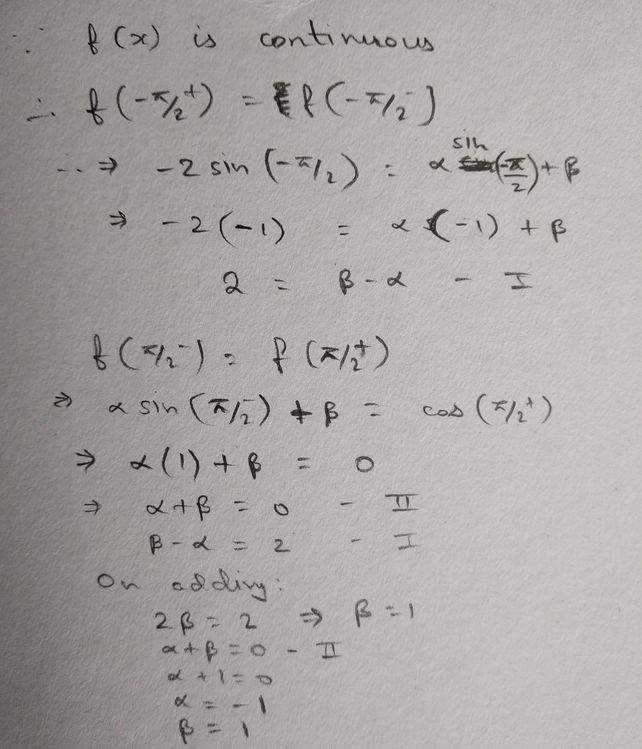 ∵ f(x) is continuous
∴ f(-π/2⁺) = f(-π/2⁻)
∴ ⇒ -2 sin(-π/2) = α sin(-π/2) + β
⇒ -2(-1) = α(-1) + β
2 = β - α - I
f(π/2⁻) = f(π/2⁺)
⇒ α sin(π/2⁻) + β = cos(π/2⁺)
⇒ α(1) + β = 0
⇒ α + β = 0 - II
β - α = 2 - I
On adding:
2β = 2 ⇒ β = 1
α + β = 0 - II
α + 1 = 0
α = -1
β = 1